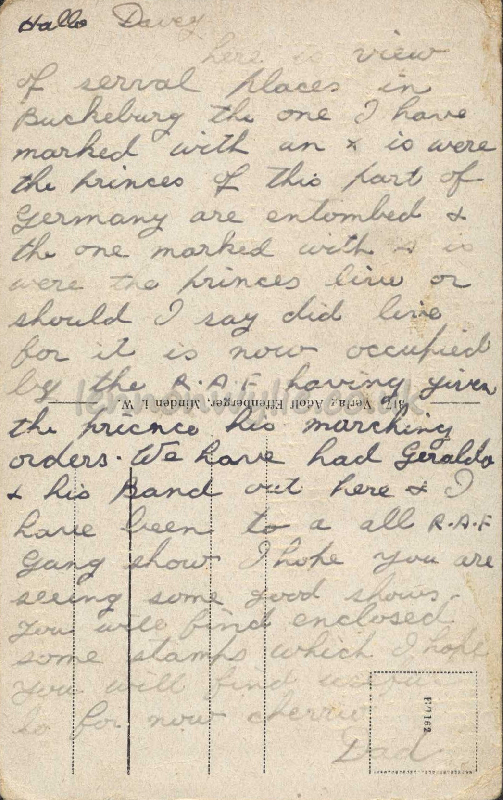 Hallo Davey
here is view
of serval places in
Buckeburg the one I have
marked with an x is were
the princes of this part of
Germany are entombed &
the one marked with is
were the princes live or
should I say did live
for it is now occupied
by the R.A.F having given
Verlag Adolf Effenberger, Minden i. W.
the prience his marching
orders. We have had Geraldo
& his Band out here & I
have been to a all R.A.F
Gang show I hope you are
seeing some good shows.
you will find enclosed
some stamps which I hope
you will find useful
so for now cherrio
Dad